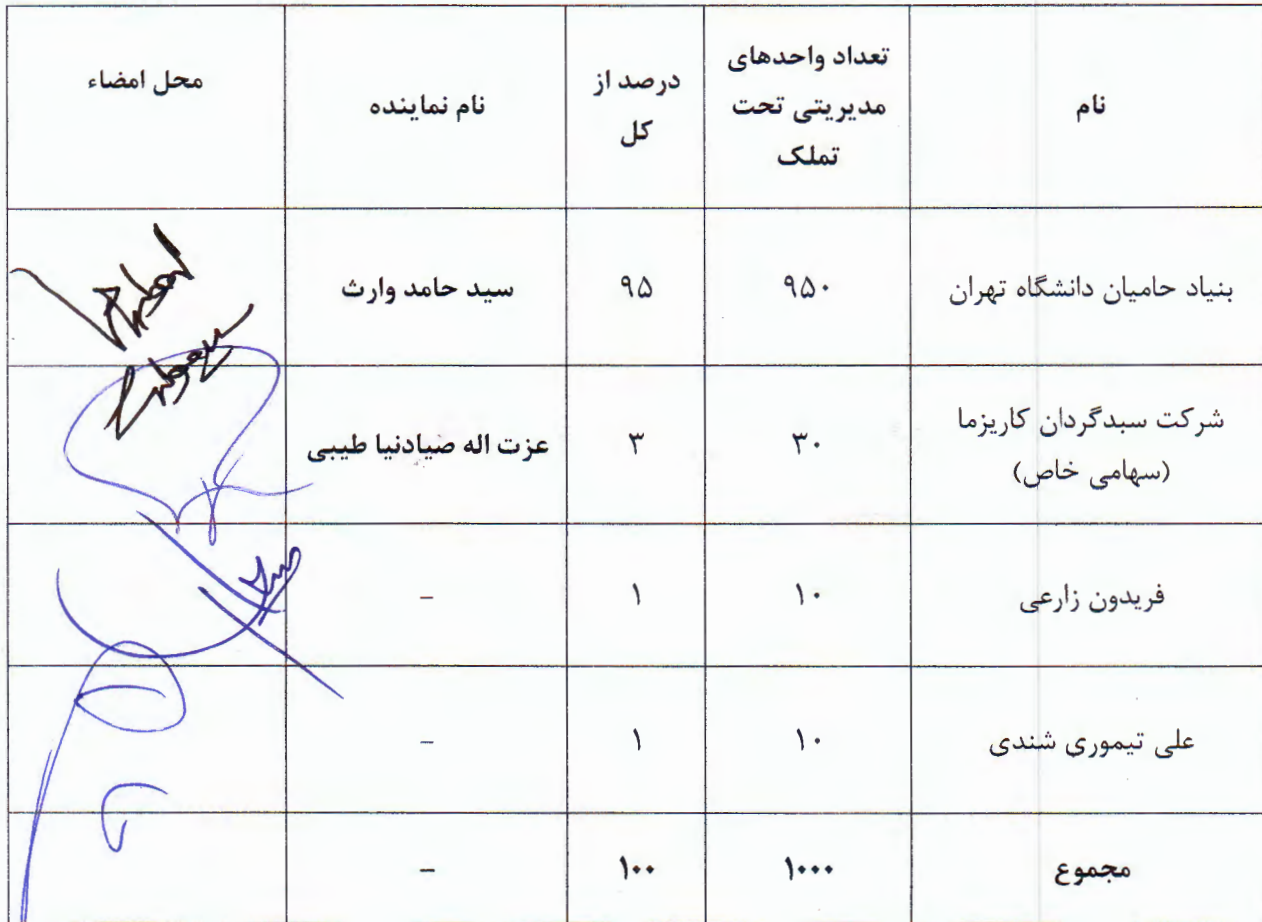 نام
تعداد واحدهای
مدیریتی تحت
تملک
درصد از
کل
نام نماینده
محل امضاء
بنیاد حامیان دانشگاه تهران
۹۵۰
۹۵
سید حامد وارث
شرکت سبدگردان کاریزما
(سهامی خاص)
۳۰
۳
عزت اله صیادنیا طیبی
فریدون زارعی
۱۰
۱
-
علی تیموری شندی
۱۰
۱
-
مجموع
۱۰۰۰
۱۰۰
-